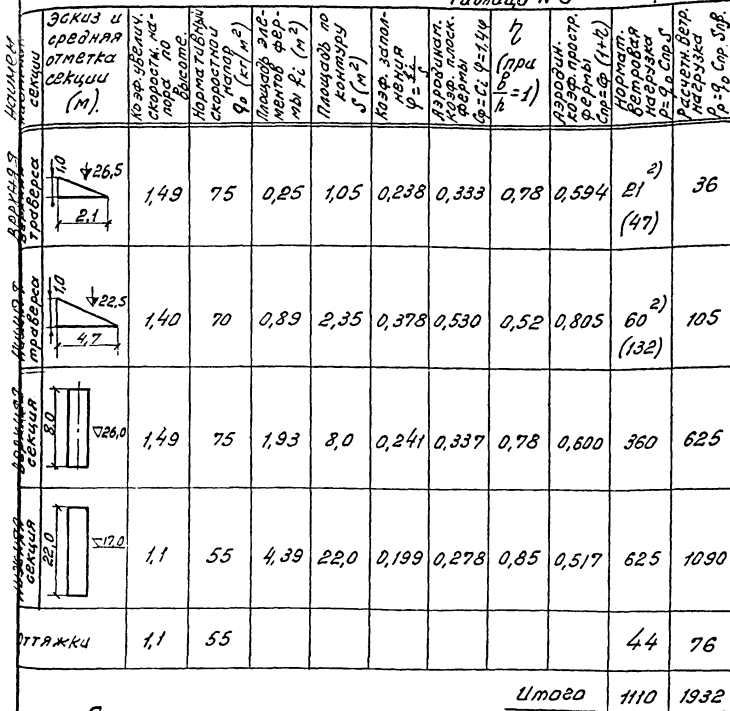 Таблица N
Наимен. секции
Эскиз и средняя отметка секции (м).
Коэф. увелич. скоростн. напора по высоте.
Нормативный скоростной напор q₀ (кг/м²)
Площадь элементов фермы fi (м²)
Площадь по контуру S (м²)
Коэф. заполнения φ=
Аэродинам. коэф. плоск. фермы Cφ=Ci·φ=1,4φ
η (при b/h=1)
Аэродин. коэф. простр. фермы Cпр=Cφ(1+η)
Нормат. ветровая нагрузка P=q₀CпрS
Расчетн. ветр. нагрузка
траверса 1,0 26,5 2,1 1,49 75 0,25 1,05 0,238 0,333 0,78 0,594 21²⁾ (47) 36
траверса 1,0 22,5 4,7 1,40 70 0,89 2,35 0,378 0,530 0,52 0,805 60²⁾ (132) 105
секция 8,0 26,0 1,49 75 1,93 8,0 0,241 0,337 0,78 0,600 360 625
Нижняя секция 22,0 17,0 1,1 55 4,39 22,0 0,199 0,278 0,85 0,517 625 1090
Оттяжки 1,1 55 44 76
Итого 1110 1932